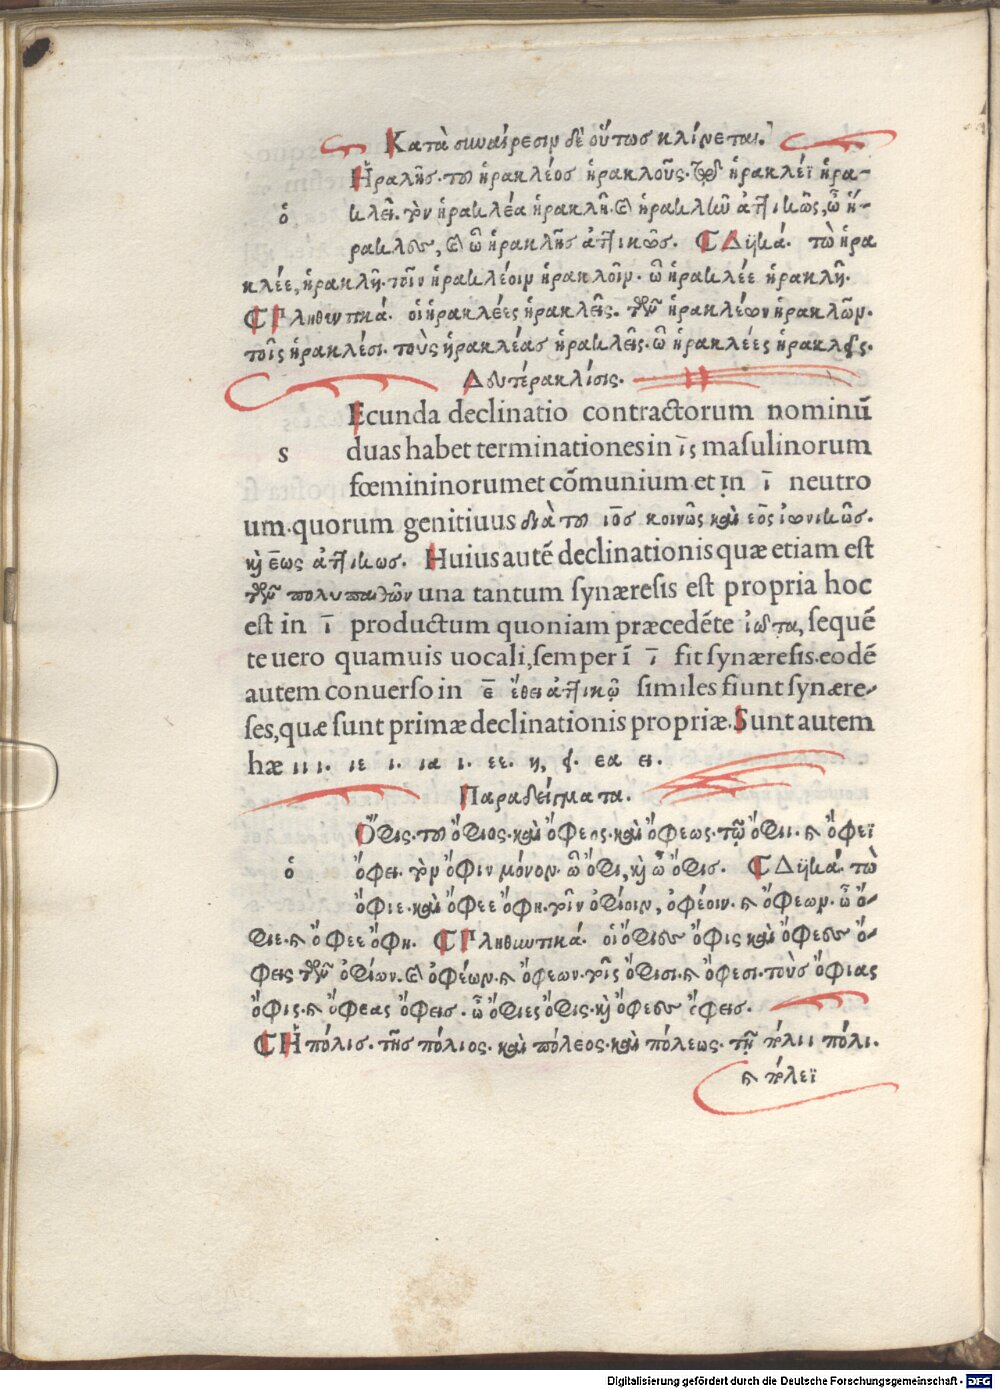 Κατὰ συναίρεσιν δὲ οὕτωσ κλίνεται.
Ἡραλῆσ. τοῦ ἡρακλέοσ ἡρακλοῦς. τῷ ἡρακλέϊ ἡρα-
ὁ κλεῖ. τὸν ἡρακλέα ἡρακλῆ. καὶ ἡρακλοῦ ἀττικῶς, ὦ ἥ-
ρακλες, καὶ ὦ ἡρακλῆσ ἀττικῶσ. Δυϊκά. τὼ ἡρα
κλέε, ἡρακλῆ. τοῖν ἡρακλέοιν ἡρακλοῖν. ὦ ἡρακλέε ἡρακλῆ.
Πληθυντικά. οἱ ἡρακλέες ἡρακλεῖς. τῶν ἡρακλέων ἡρακλῶν.
τοῖς ἡρακλέσι. τοὺς ἡρακλέασ ἡρακλεῖς. ὦ ἡρακλέες ἡρακλεῖς.
Δευτέρα κλίσις.
Ecunda declinatio contractorum nominū
s duas habet terminationes in ῑς masulinorum
fœmininorumet cōmunium et in ῑ neutro
um. quorum genitiuus διὰ τοῦ ιος κοινῶς καὶ εος ἰωνικῶς.
καὶ εως ἀττικωσ. Huius autē declinationis quæ etiam est
τῶν πολυπαθῶν una tantum synæresis est propria hoc
est in ῑ productum quoniam præcedēte ἰῶτα, sequē
te uero quamuis uocali, semper ī ῑ fit synæresis. eodē
autem conuerso in ε̄ ἔθει ἀττικῷ similes fiunt synære-
ses, quæ sunt primæ declinationis propriæ. Sunt autem
hæ ιι ι. ιε ι. ια ι. εε. η, ει. εα ει.
Παραδείγματα.
Ὄφις. τοῦ ὄφιος. καὶ ὄφεος. καὶ ὄφεως. τῷ ὄφιι. καὶ ὄφεϊ
ὁ ὄφει. τὸν ὄφιν μόνον. ὦ ὄφι, καὶ ὦ ὄφισ. Δυϊκά. τὼ
ὄφιε. καὶ ὄφεε ὄφη. τοῖν ὀφίοιν, ὀφέοιν. καὶ ὄφεων. ὦ ὄ-
φιε. καὶ ὄφεε ὄφη. Πληθυντικά. οἱ ὄφιες ὄφις καὶ ὄφεες ὄ-
φεις τῶν ὀφίων. καὶ ὀφέων. καὶ ὄφεων. τοῖς ὄφισι. καὶ ὄφεσι. τοὺσ ὄφιας
ὄφις. καὶ ὄφεας ὄφεισ. ὦ ὄφιες ὄφις. καὶ ὄφεες ὄφεισ.
Ἡ πόλισ. τῆσ πόλιος. καὶ πόλεος. καὶ πόλεως. τῇ πόλιι πόλι.
καὶ πόλεϊ
Digitalisierung gefördert durch die Deutsche Forschungsgemeinschaft - DFG